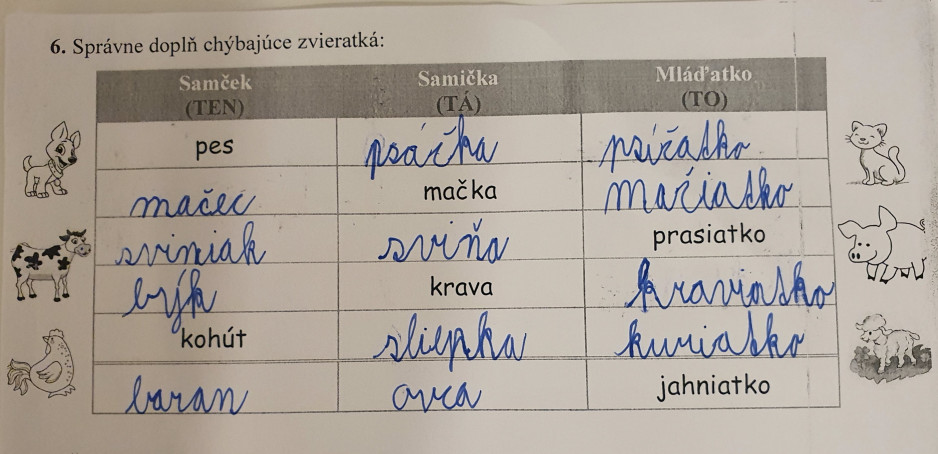 6. Správne doplň chýbajúce zvieratká:
Samček Samička Mláďatko
(TEN) (TÁ) (TO)
pes psáčka psíčatko
mačec mačka mačiatko
sviniak sviňa prasiatko
býk krava kraviatko
kohút sliepka kuriatko
baran ovca jahniatko